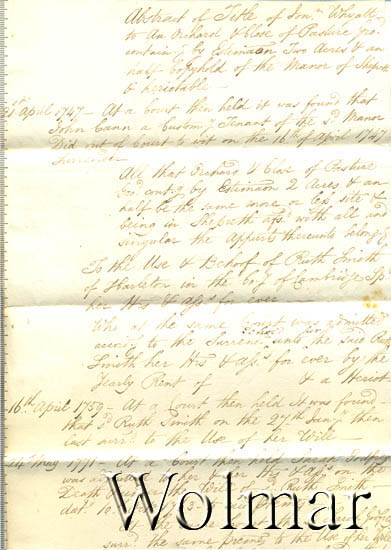 Abstract of Title of Jonn. Whyatt
to An Orchard & Close of Pasture gro.
containg. by Estimaon Two Acres & an
half Copyhold of the Manor of
& heriotable
21st. April 1747 - At a Court then held it was found that
John Cann a Customy. Tenant of the sd. Manor
Did out of Court to wit on the 16th of April 1747
Surrender
All that Orchard & Close of Pasture
contg. by Estimaon 2 Acres & an
half be the same more or less site &
being in afsd. with all and
singular the Appurts. thereunto belong
To the Use & Behoof of Ruth Smith
of in the Coy. of Cambridge
her Hrs & Asss. for ever
Who at the same Court was admitted
accordg. to the Surrender unto the said Ruth
Smith her Hrs & Asss. for ever by the
Yearly Rent of & a Heriot
16th. April 1759 - At a Court then held It was found
that sd. Ruth Smith on the 27th Jany. then
last surrd. to the Use of her Will
14th May 1771 - At a Court then held
was to her Hrs & Asss. on the
Death of Ruth Smith
dat. 10
surrd. the same premes. to the Use of her Will
Wolmar